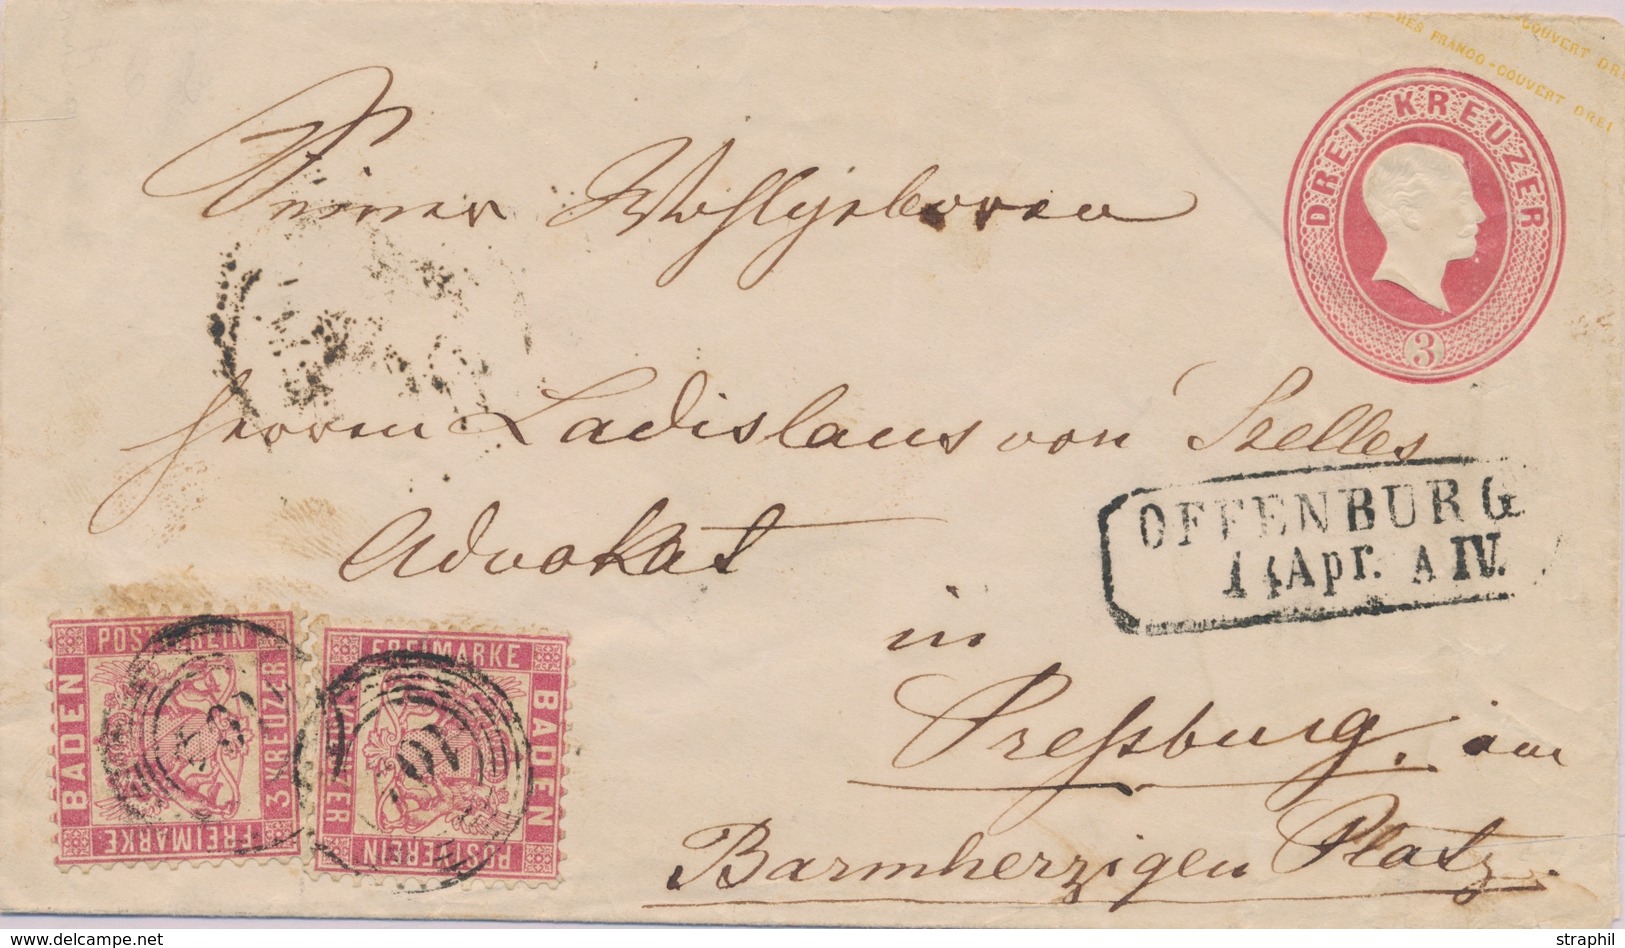 COUVERT DREI
FRANCO-COUVERT DREI
DREI KREUZER
3
Seiner Wohlgeboren
Herrn Ladislaus von Szelles
Advokat
in
Preßburg. am
Barmherzigen Platz.
OFFENBURG
14 Apr. A IV.
POSTVEREIN
BADEN
3 KREUZER
FREIMARKE
FREIMARKE
BADEN
KREUZER
POSTVEREIN
101
http://www.delcampe.net
straphil